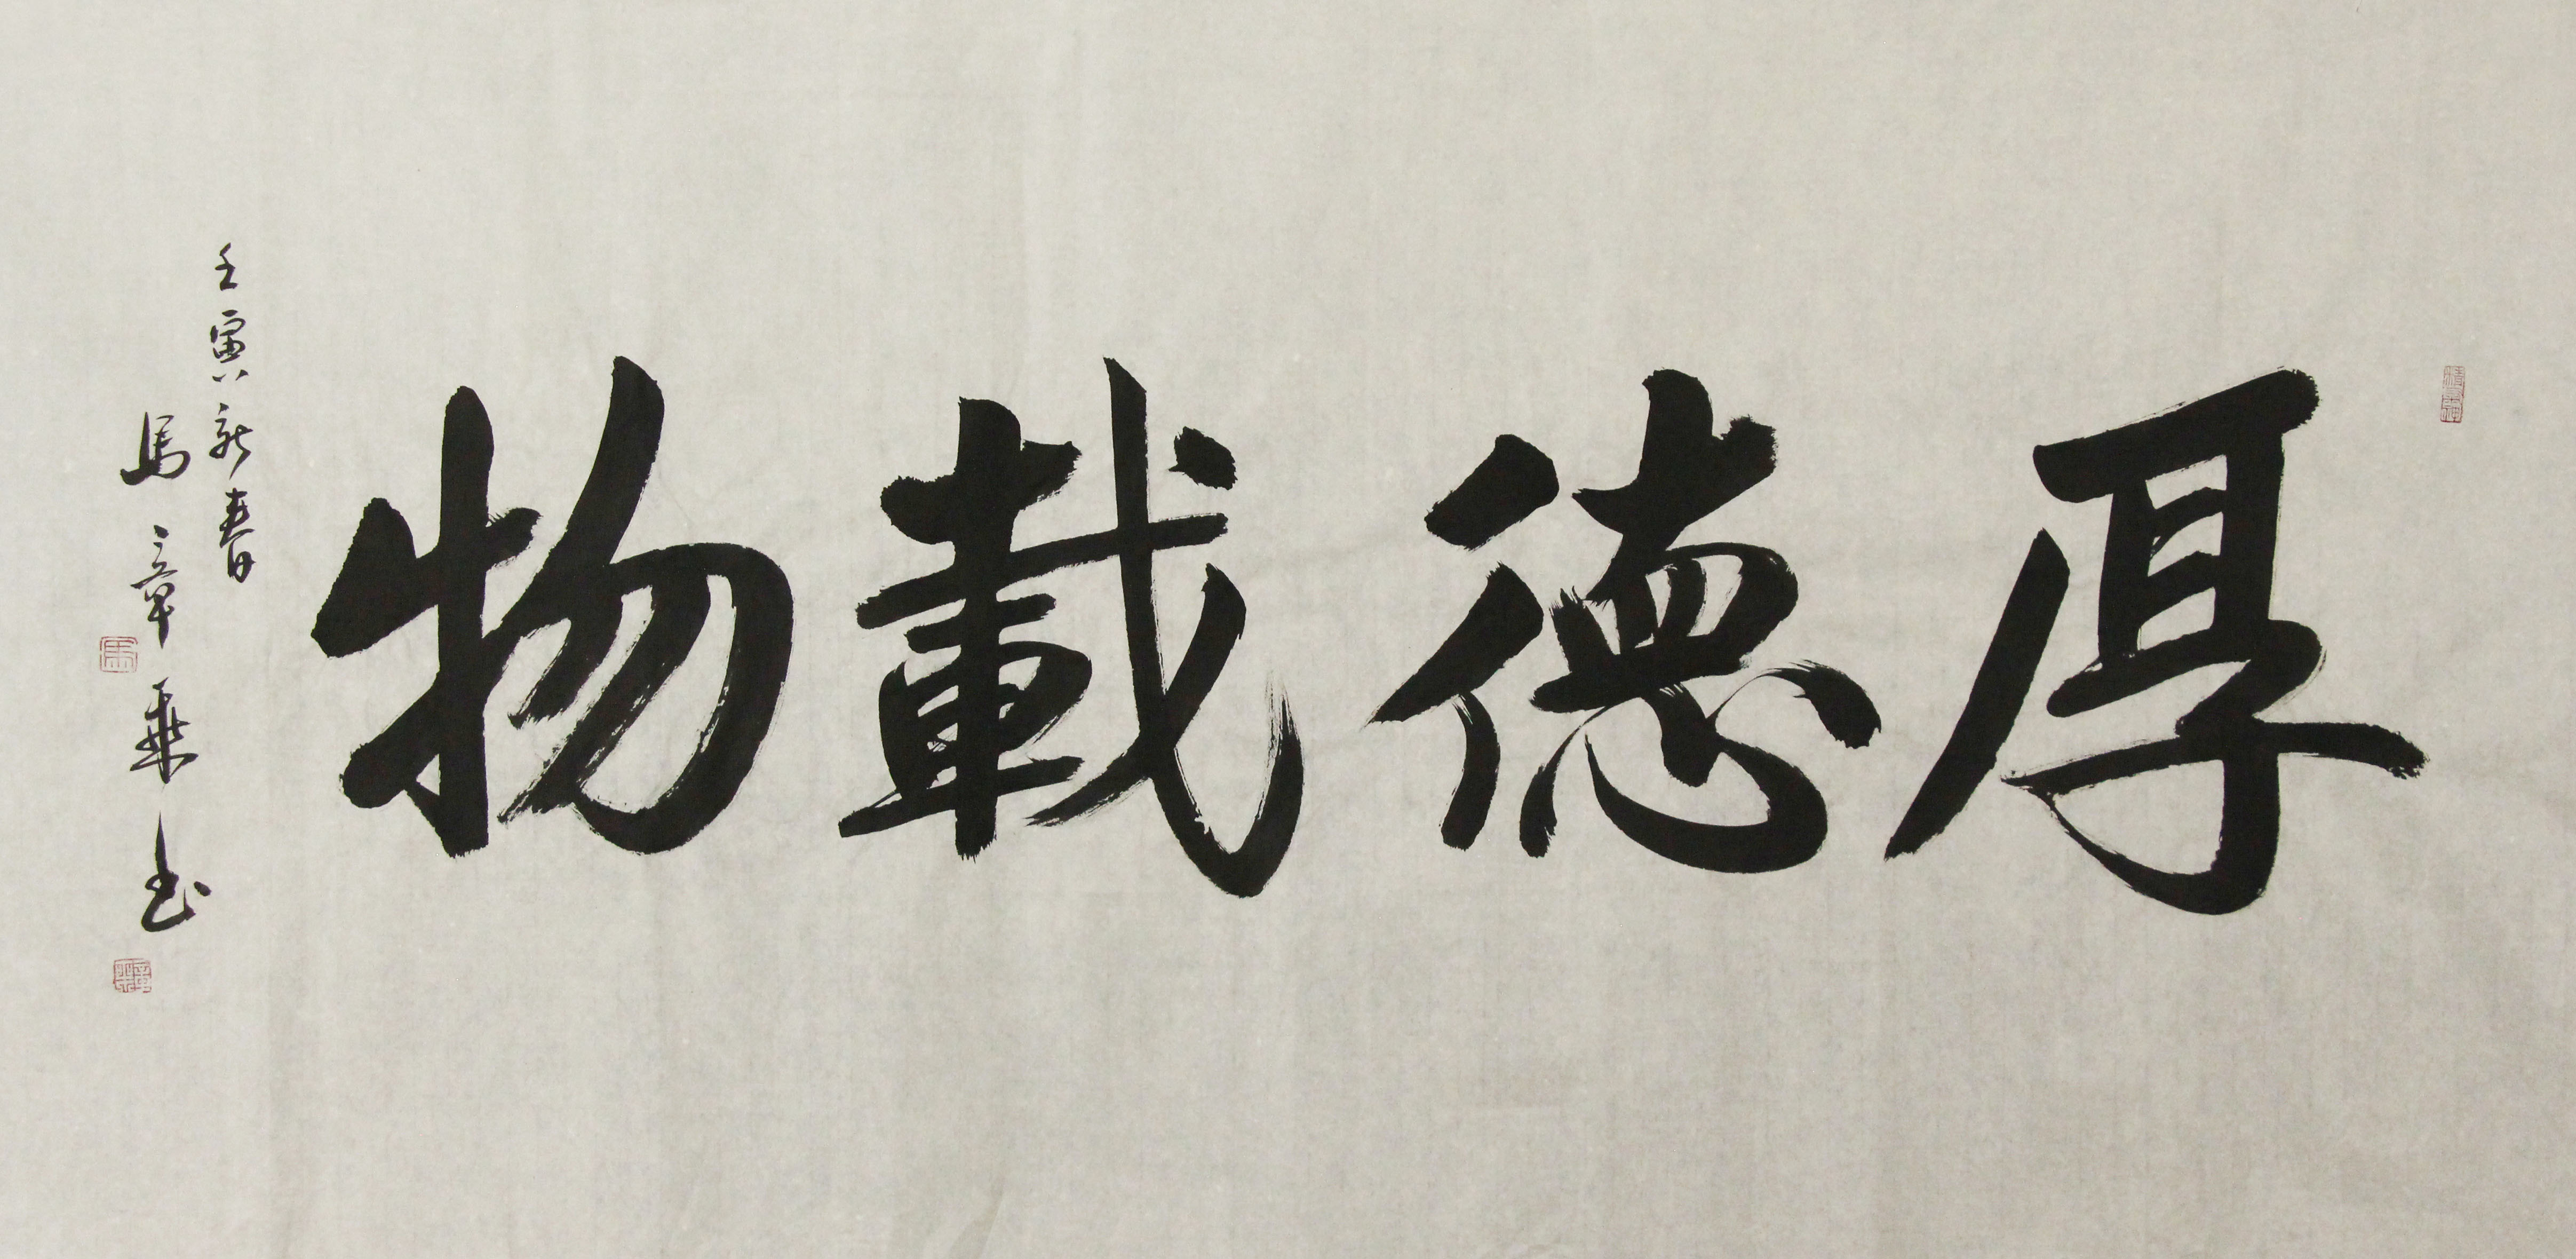 厚德載物
壬寅新春
馬章乘書